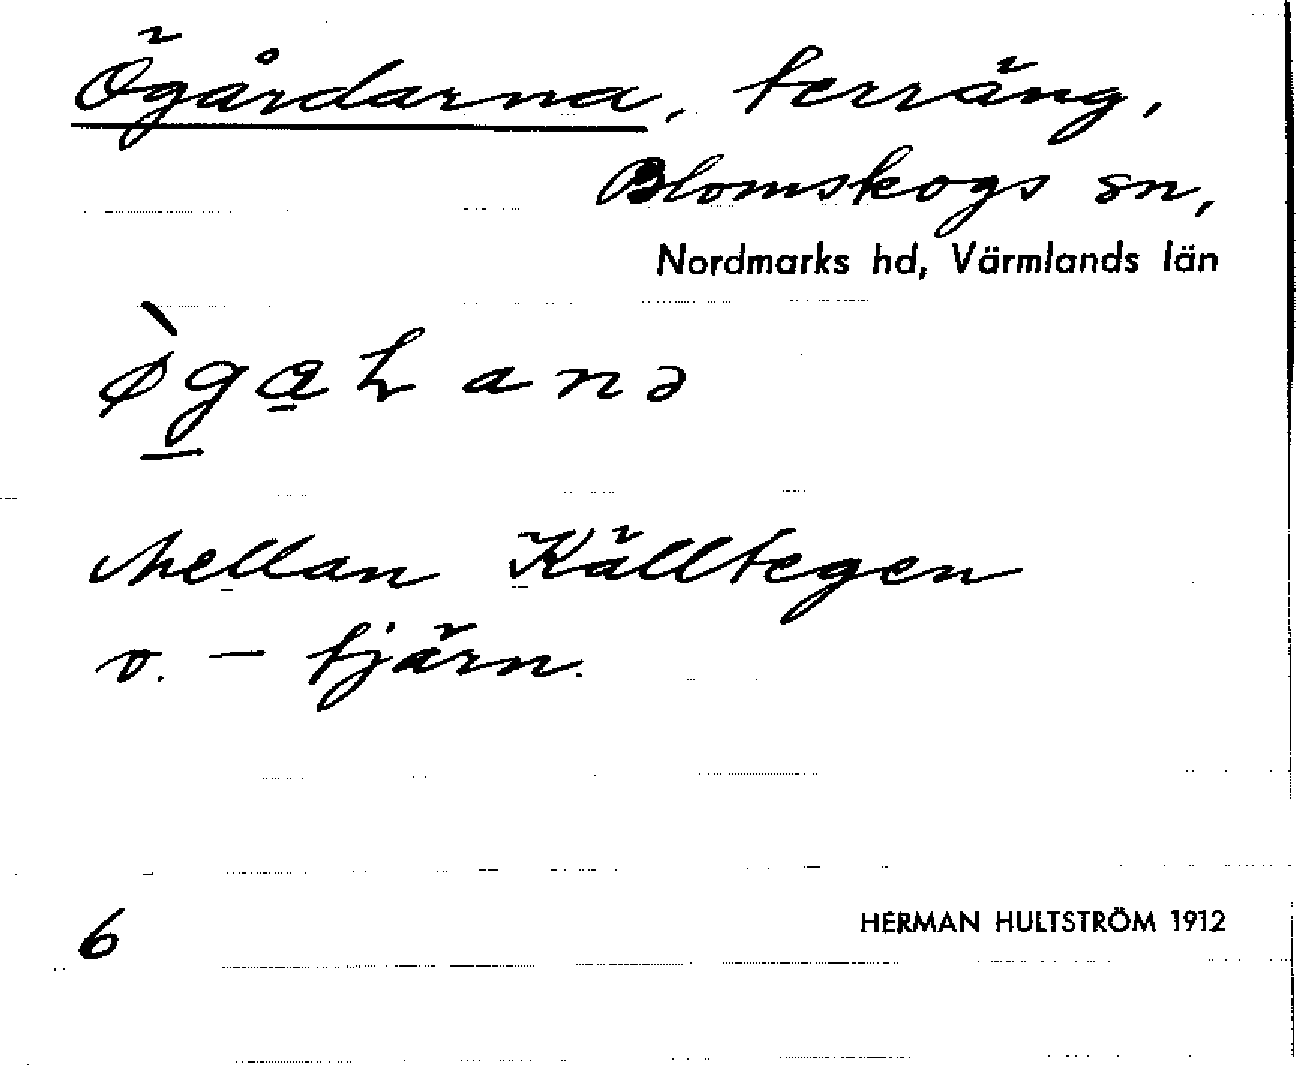 Ögårdarna, terräng,
Blomskogs sn,
Nordmarks hd, Värmlands län
Mellan Källtegen
o. – tjärn.
6
HERMAN HULTSTRÖM 1912